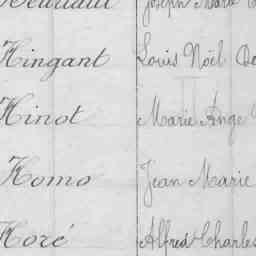 Joseph Marie
Hingant Louis Noël
Hinot Marie Ange
Homo Jean Marie
Horé Alfred Charles